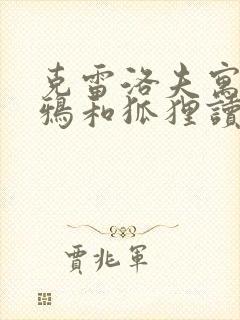 克雷洛夫寓
鴉和狐狸讀
賈兆軍